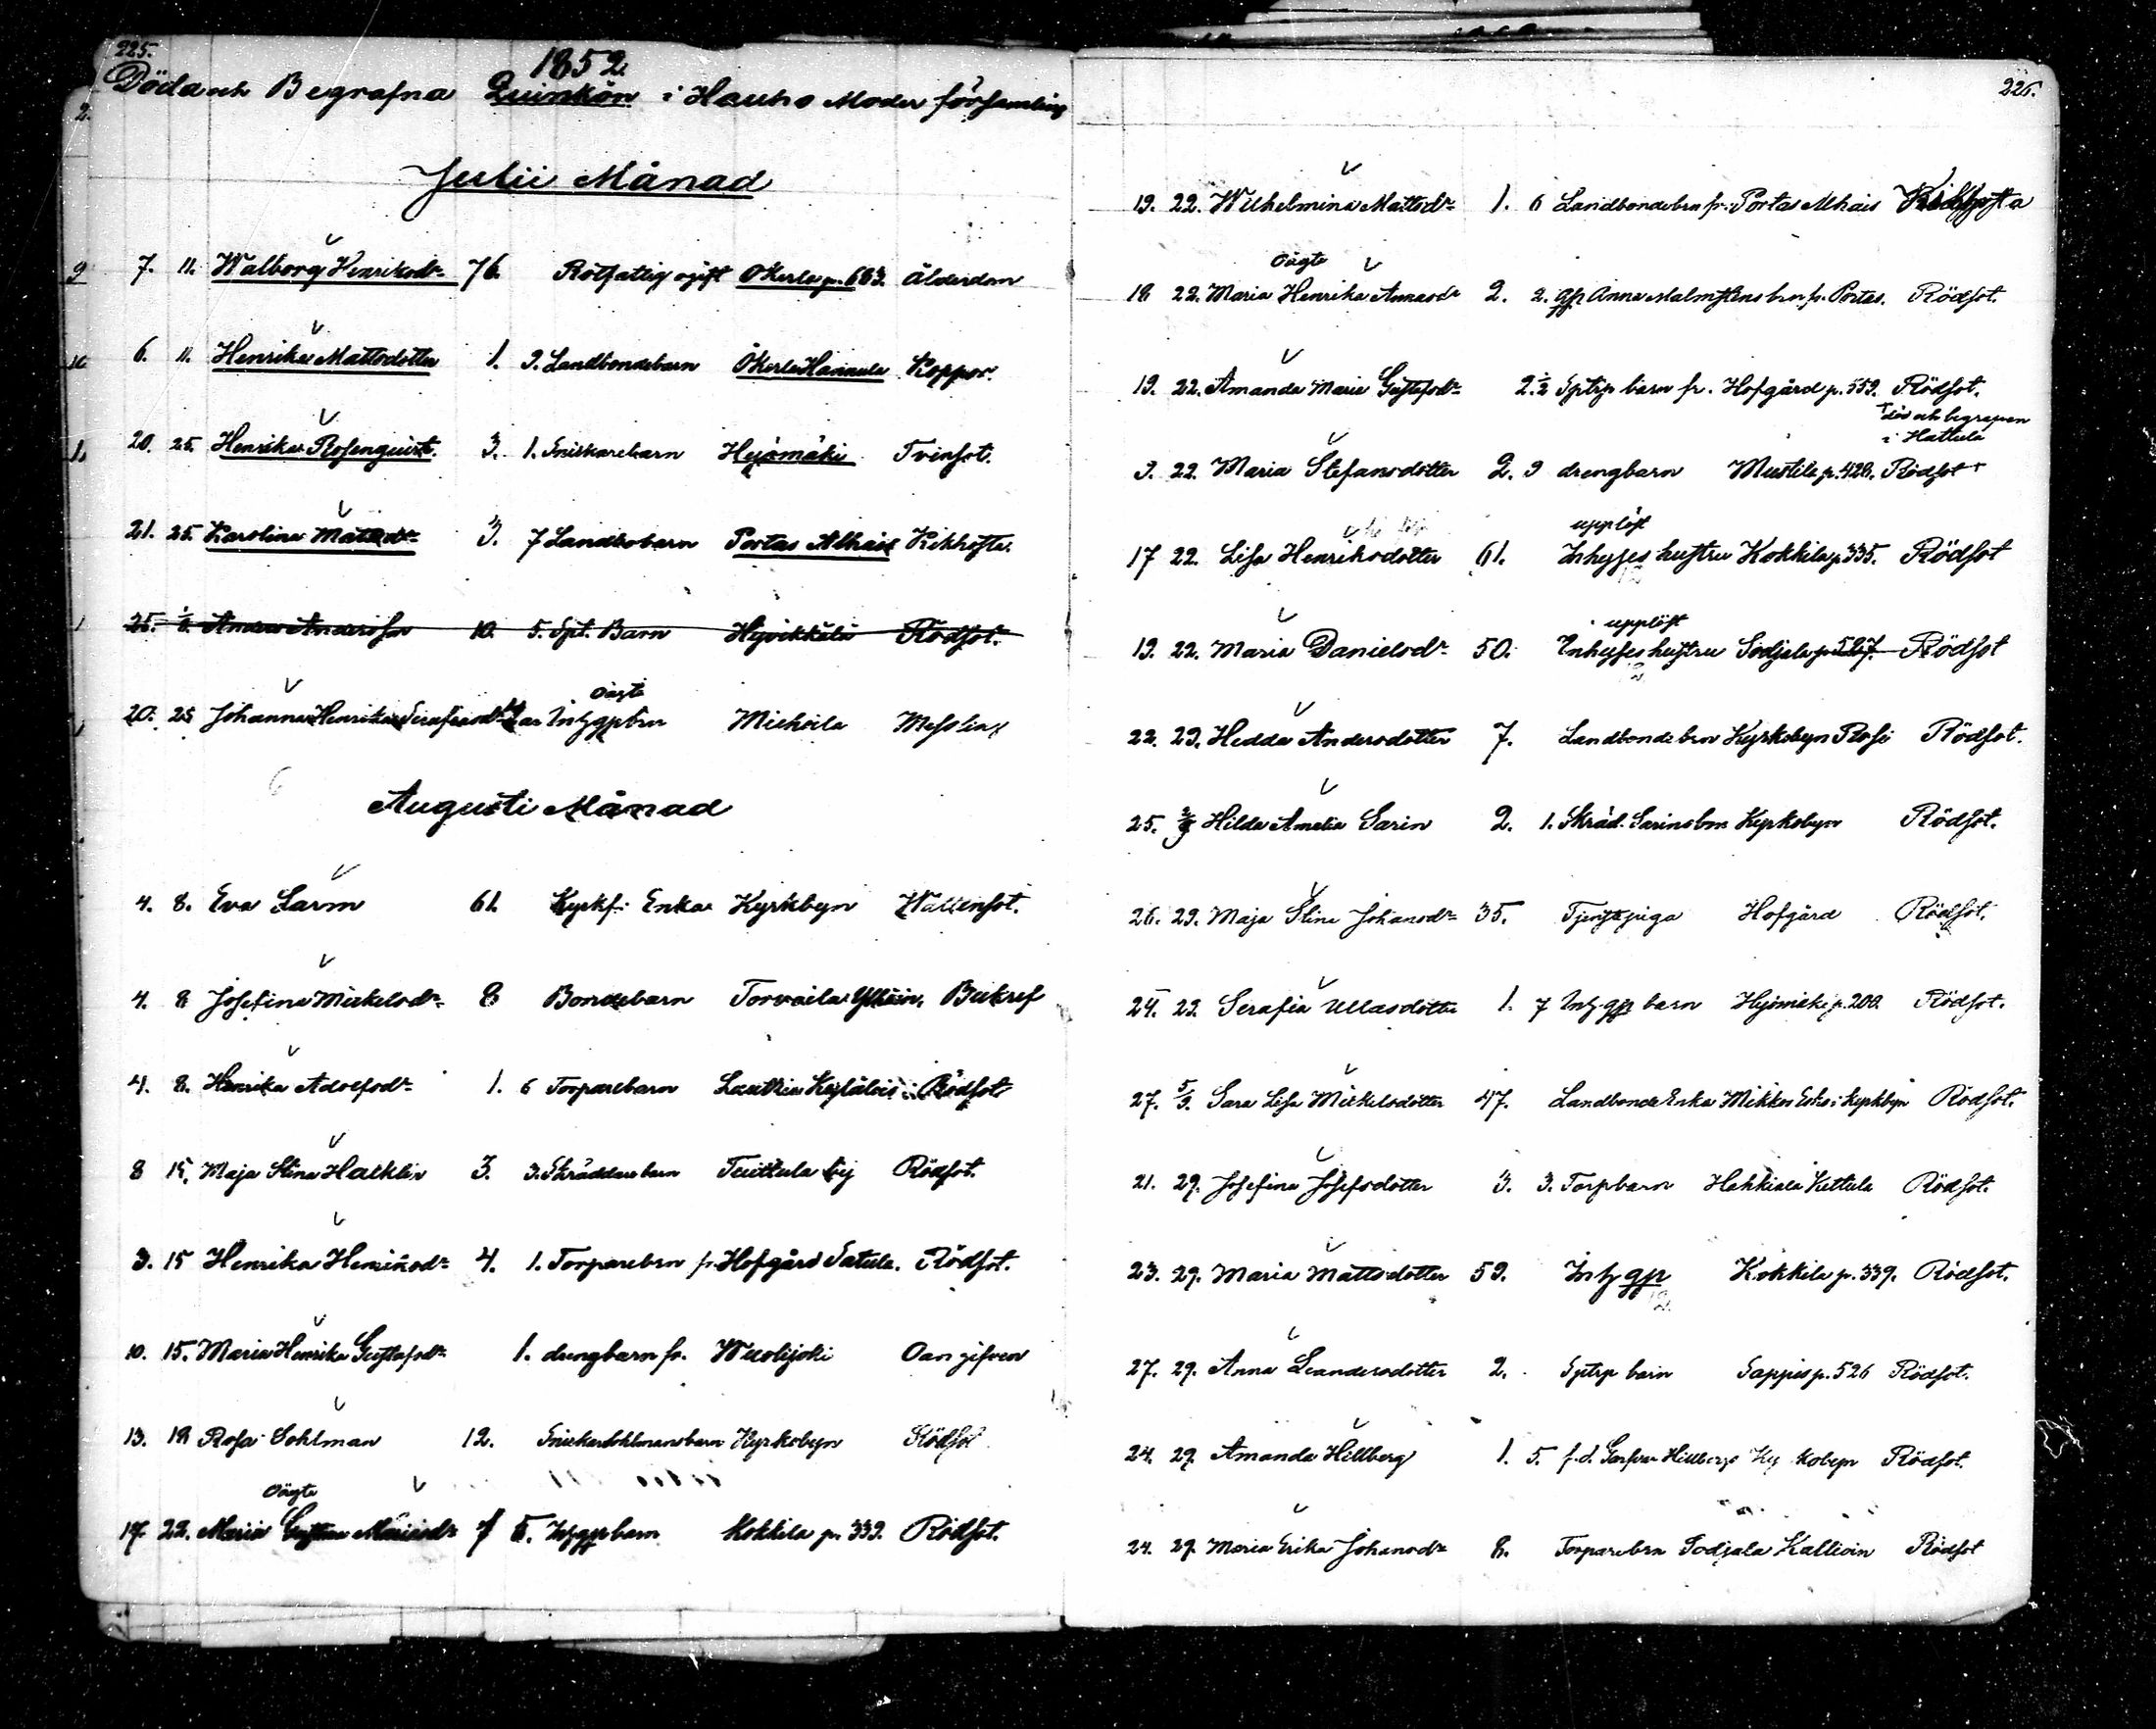 225.
1852.
Döda och Begrafna Quinkön i Hauho Moder församling
Julii Månad
7. 11. Walborg Henriksdr 76. Rotfattig ogift Okerla p. 663. Ålderdom
6. 11. Henrika Mattsdotter 1. 9. Landbondebarn Okerla Hannula Koppor.
20. 25. Henrika Rosenquist. 3. 1. Snickarebarn Hyömäki Tvinsot.
21. 25. Karolina Matsdr 3. 7 Landbobarn Portas Alhais Kikhosta.
25. 1/8. Anders Andersson 10. 5. Spt. Barn Hyvikkälä Rödsot.
oägta
20. 25 Johanna Henrika Serafiasdr Inh gp brn Miehoila Messling
Augusti Månad
4. 8. Eva Sarin 61. Kyrkf. Enka Kyrkbyn Wattensot.
4. 8 Josefina Mickelsdr 8 Bondebarn Torvoila Bukref
4. 8. Henrika Adolfsdr 1. 6 Torparebarn Rödsot
8 15. Maja Stina Hacklin 3. 3. Skräddare barn Tuittula by Rödsot.
3. 15 Henrika Henriksdr 4. 1. Torparebrn fr. Hofgård Satula. Rödsot.
10. 15. Maria Henrika Gustafsdr 1. drengbarn fr. Wuolijoki Oangifven
13. 19. Rosa Sohlman 12. Snickar Sohlmansbarn Kyrkobyn Rödsot
oägta
17. 22. Maria Gustava Mariasdr 7 5. Inh gp barn Kokkila p. 339. Rödsot.
226.
19. 22. Wilhelmina Mattsdr 1. 6 Landbondebrn fr. Portas Alhais Kikhosta
oägta
18 22. Maria Henrika Annasdr 2. 2. gp Anna Malmstens brn fr. Portas. Rödsot.
19. 22. Amanda Maria Gustafsdr 2. 1/2 Sptrp barn fr. Hofgård p. 559. Rödsot.
+ död och begrafven
i Hattula
9. 22. Maria Stefansdotter 2. 9 drengbarn Mustila p. 428. Rödsot +
upplöst
17 22. Lisa Henriksdotter 61. Inhyses hustru Kokkila p. 335. Rödsot
upplöst
19. 22. Maria Danielsdr 50. Inhyses hustru Sodjala p. 587. Rödsot
22. 29. Hedda Andersdotter 7. Landbonde brn Kyrkobyn Rosi Rödsot.
25. Hilda Amalia Sarin 2. 1. Skräd. Sarins brn Kyrkobyn Rödsot.
26. 29. Maja Stina Johansdr 35. Tjenstepiga Hofgård Rödsot.
24. 29. Serafia Ullasdotter 1. 7 Inh gp barn Hyömäki p. 200. Rödsot.
27. 5/9. Sara Lisa Mickelsdotter 47. Landbonde Enka Mikkos Esko i Kyrkbyn Rödsot.
21. 29. Josefina Josefsdotter 3. 3. Torpbarn Hahkiala Kettula Rödsot.
23. 29. Maria Mattsdotter 59. Inh gp Kokkila p. 339. Rödsot.
27. 29. Anna Leandersdotter 2. Sptrp barn Sappis p. 526 Rödsot.
24. 29. Amanda Hellberg 1. 5. f.d. Garfvar Hellbergs Kyrkobyn Rödsot.
24. 29. Maria Erika Johansdr 8. Torparebrn Sodjala Kallioin Rödsot